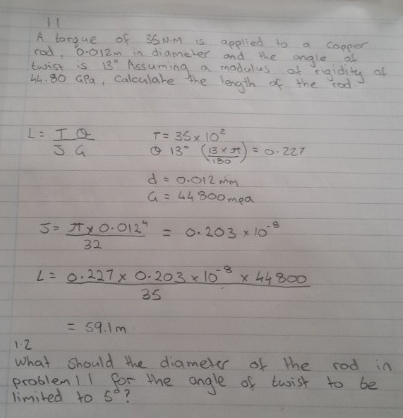 11
A torque of 35 N.M is applied to a copper
rod, 0.012m in diameter and the angle of
twist is 13° Assuming a modulus of rigidity of
44.80 GPa, Calculate the length of the rod
L = T θ / J G T = 35 × 10²
θ 13° (13 × π / 180) = 0.227
d = 0.012 mm
G = 44800 mpa
J = π × 0.012⁴ / 32 = 0.203 × 10⁻⁸
L = 0.227 × 0.203 × 10⁻⁸ × 44800 / 35
= 59.1m
1.2
What should the diameter of the rod in
problem 1.1 for the angle of twist to be
limited to 5°?